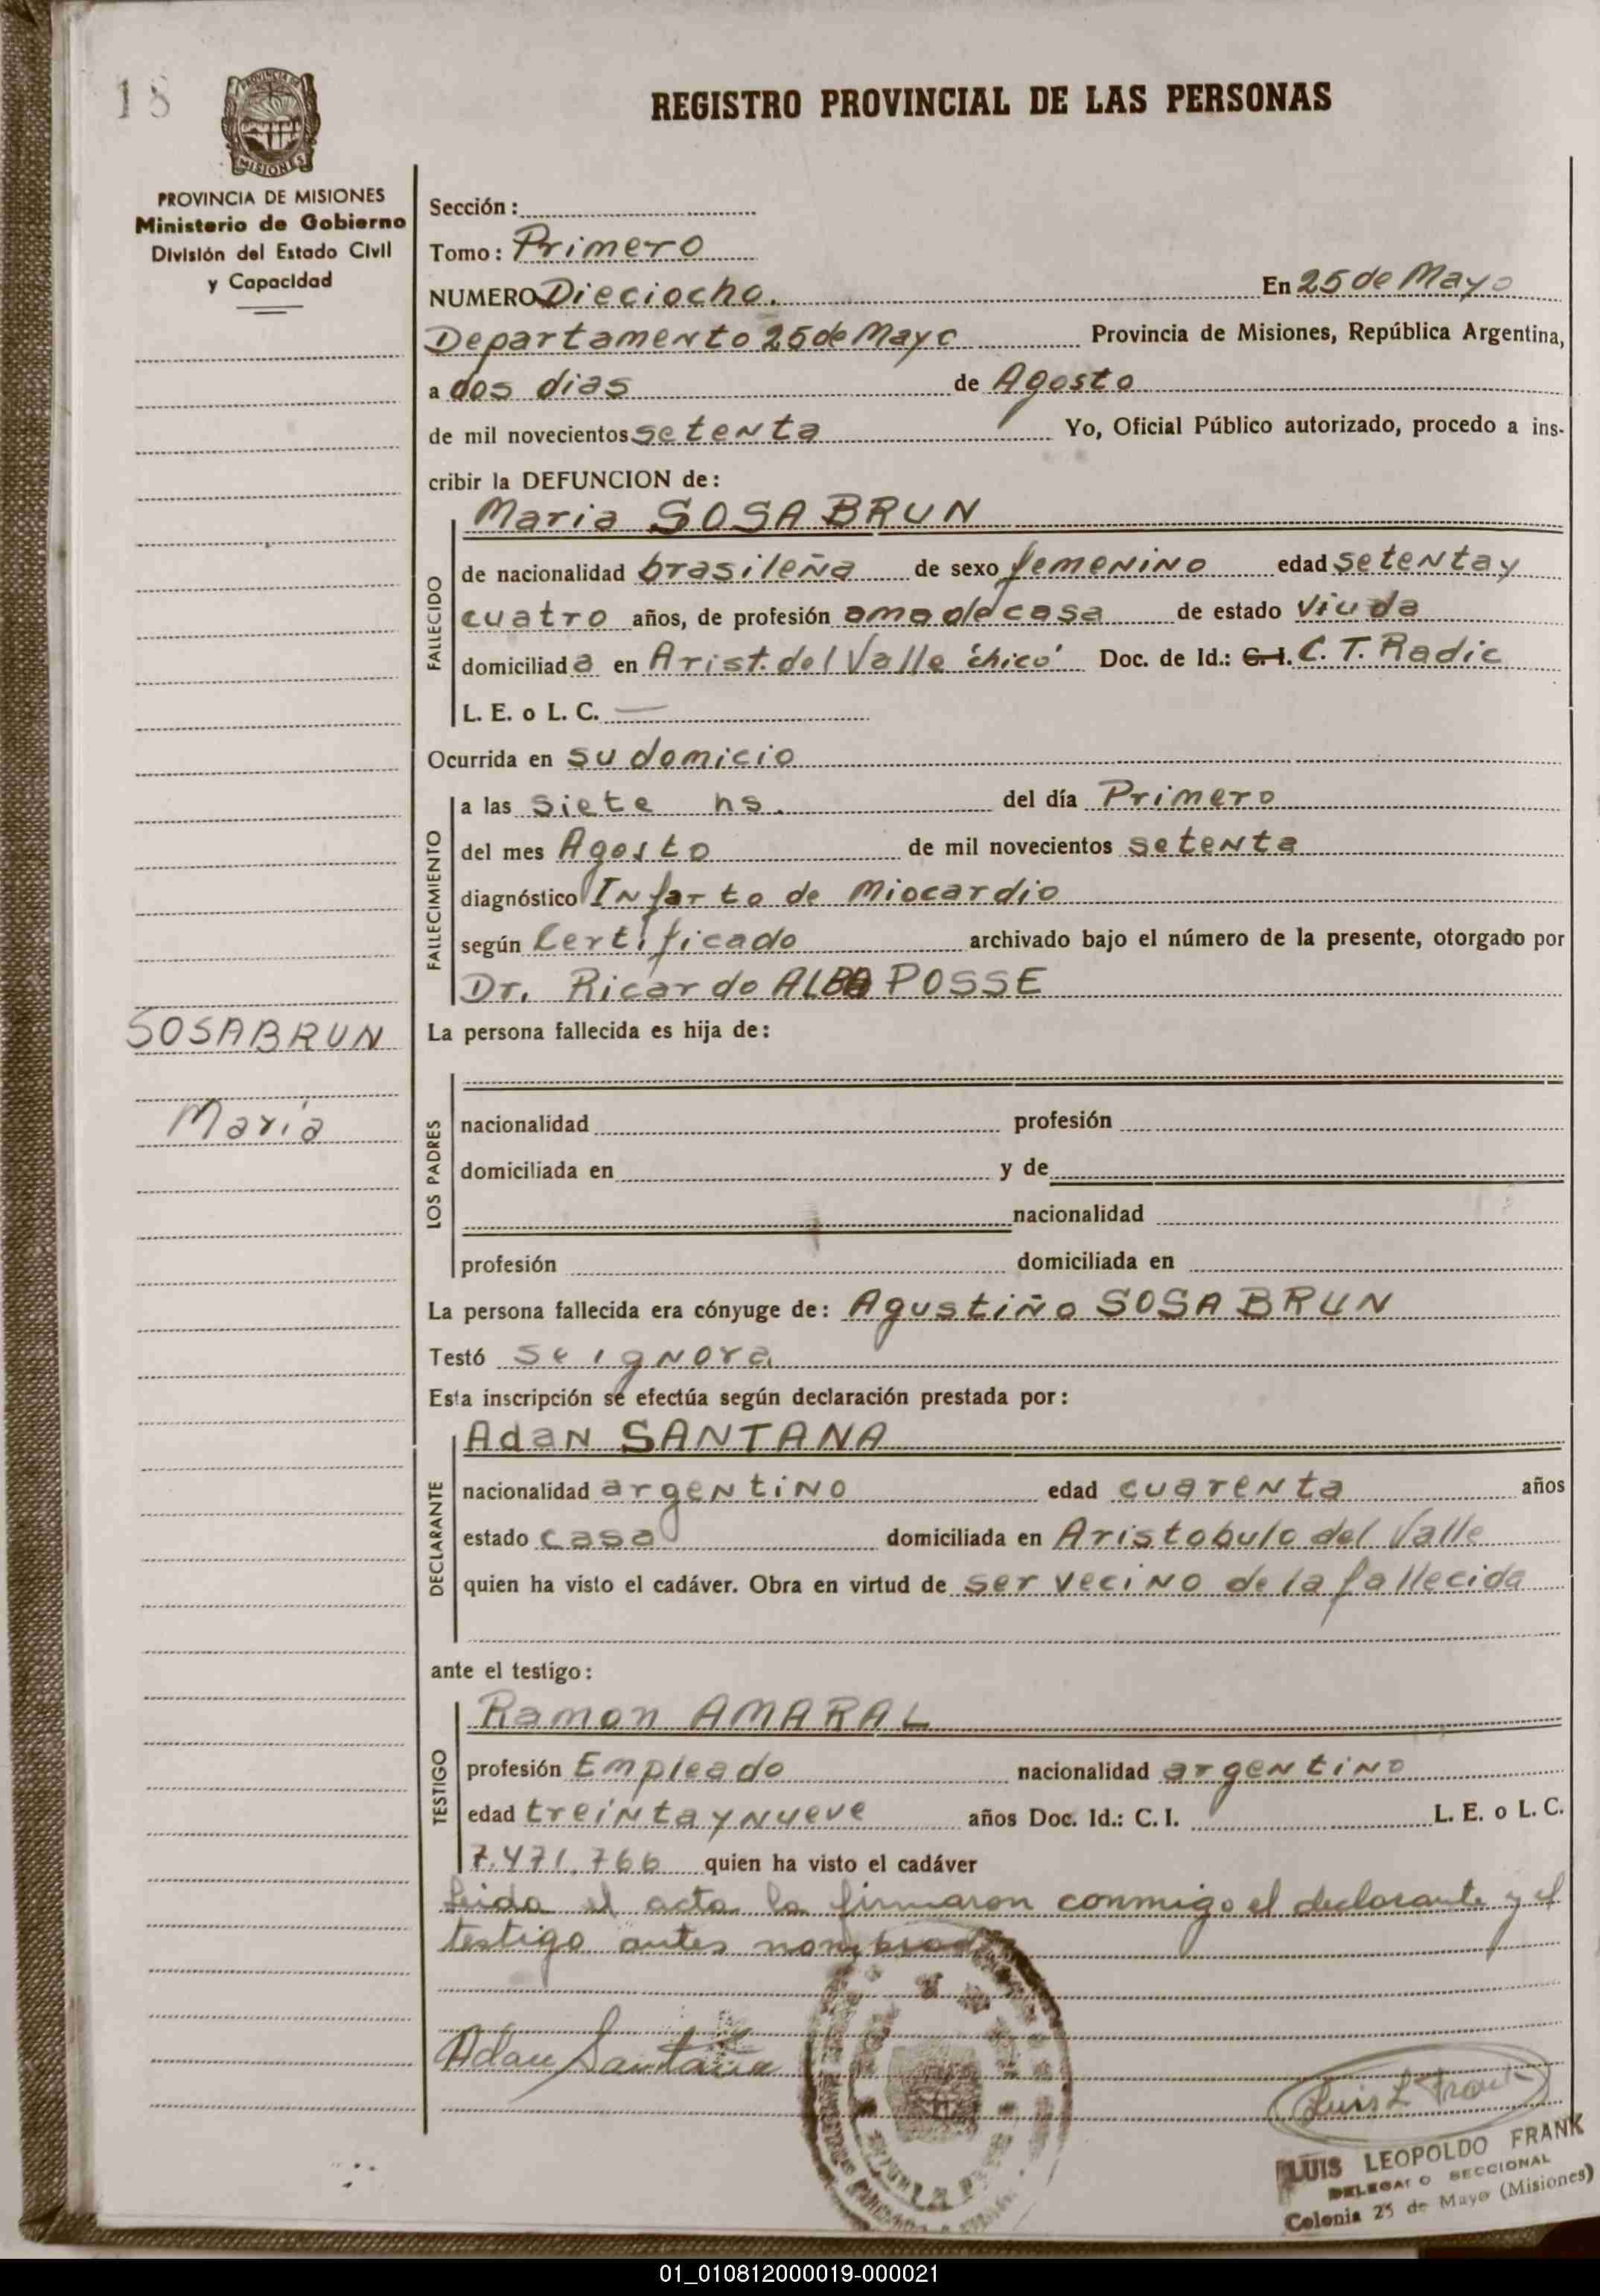 18
PROVINCIA DE
MISIONES
PROVINCIA DE MISIONES
Ministerio de Gobierno
División del Estado Civil
y Capacidad
REGISTRO PROVINCIAL DE LAS PERSONAS
Sección:
Tomo: Primero
NUMERO Dieciocho. En 25 de Mayo
Departamento 25 de Mayo Provincia de Misiones, República Argentina,
a dos dias de Agosto
de mil novecientos setenta Yo, Oficial Público autorizado, procedo a ins-
cribir la DEFUNCION de:
FALLECIDO
Maria SOSA BRUN
de nacionalidad brasileña de sexo femenino edad setenta y
cuatro años, de profesión ama de casa de estado viuda
domiciliada en Arist. del Valle 'chico' Doc. de Id.: C. I. C. T. Radic
L. E. o L. C. —
Ocurrida en su domicio
FALLECIMIENTO
a las siete hs. del día Primero
del mes Agosto de mil novecientos setenta
diagnóstico Infarto de Miocardio
según Certificado archivado bajo el número de la presente, otorgado por
Dr. Ricardo ALBA POSSE
SOSA BRUN
Maria
La persona fallecida es hija de:
LOS PADRES
nacionalidad profesión
domiciliada en y de
nacionalidad
profesión domiciliada en
La persona fallecida era cónyuge de: Agustiño SOSA BRUN
Testó se ignora
Esta inscripción se efectúa según declaración prestada por:
DECLARANTE
Adan SANTANA
nacionalidad argentino edad cuarenta años
estado casa domiciliada en Aristobulo del Valle
quien ha visto el cadáver. Obra en virtud de ser vecino de la fallecida
ante el testigo:
TESTIGO
Ramon AMARAL
profesión Empleado nacionalidad argentino
edad treinta y nueve años Doc. Id.: C. I. L. E. o L. C.
7.471.766 quien ha visto el cadáver
Leida el acta la firmaron conmigo el declarante y el
testigo antes nombrado
Adan Santana
Luis L Frank
LUIS LEOPOLDO FRANK
DELEGADO SECCIONAL
Colonia 25 de Mayo (Misiones)
01_010812000019-000021